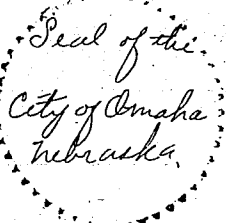 Seal of the
City of Omaha
Nebraska.